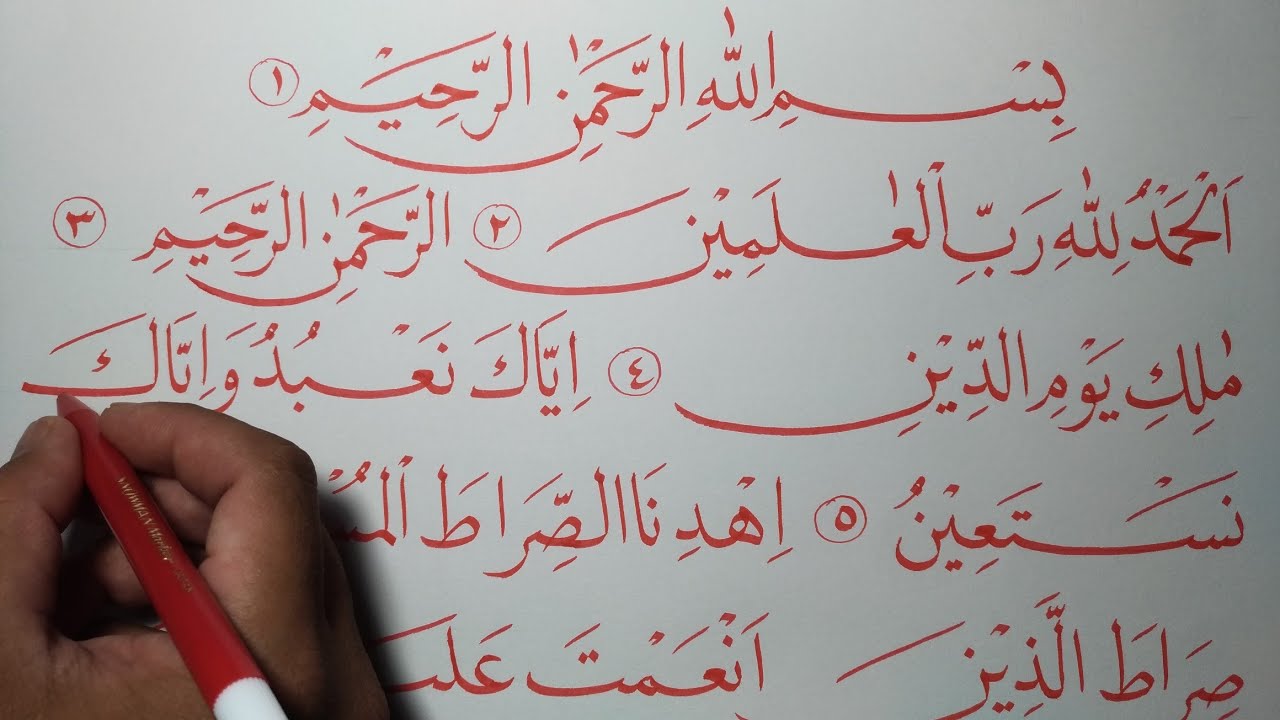 بِسْمِ اللّٰهِ الرَّحْمٰنِ الرَّحِيْمِ ١
اَلْحَمْدُ لِلّٰهِ رَبِّ الْعٰلَمِيْنَ ٢ الرَّحْمٰنِ الرَّحِيْمِ ٣
مٰلِكِ يَوْمِ الدِّيْنِ ٤ اِيَّاكَ نَعْبُدُ وَاِيَّاكَ
نَسْتَعِيْنُ ٥ اِهْدِنَا الصِّرَاطَ
صِرَاطَ الَّذِيْنَ اَنْعَمْتَ